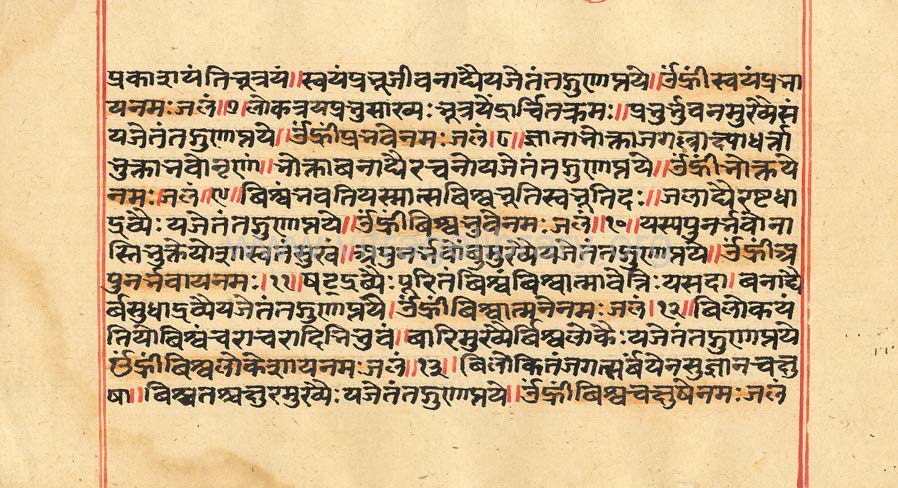 प्रकाशयंतिभूत्रयं॥स्वयंप्रभूजीवनाद्यैयजेतंतद्गुणाप्तये॥ॐह्रीं स्वयंप्रभा
यनमःजलं।७।लोकत्रयप्रभुसारव्यःभूत्रयेंद्रार्चितक्रमः॥प्रभुर्भुवनमुख्यैसं
यजेतंतद्गुणाप्तये॥ॐह्रींप्रभवेनमःजलं।८॥ज्ञाताभोक्ताजग
भुक्ताभवोनृणां॥भोक्ताबनाद्यैरचनोयजेतंतद्गुणाप्तये॥ॐह्रींभोक्तये
नमःजलं।९॥बिश्वंभवतियस्मात्सबिश्वभूतिस्वभूतिदः॥जलाद्यैरष्टधा
द्रव्यैःयजेतंतद्गुणाप्तये॥ॐह्रींबिश्वभुवेनमःजलं।१०॥यस्यपुनर्भवोना
स्तिमुक्तेयो ॥अपुनर्भवांबुमुख्यैयजेतंतद्गुणाप्तये॥ॐह्रींअ
पुनर्भवायनमः।११।षट्द्रव्यैःपूरितंबिश्वंबिश्वात्मावेत्रियसदा।बनाद्यै
र्बसुधाद्रव्यैयजेतंतद्गुणाप्तये॥ॐह्रींबिश्वात्मनेनमःजलं।१२॥बिलोकयं
तियोबिश्वंचराचरादिभिभुवं॥बारिमुख्यैर्बिश्वलोकैःयजेतंतद्गुणाप्तये
ॐह्रींबिश्वलोकेशायनमःजलं।१३॥बिलोकितंजगत्सर्बंयेनसुज्ञानचक्षु
षा॥बिश्वतश्चक्षुरमुख्यैःयजेतंतद्गुणाप्तये॥ॐह्रींबिश्वचक्षुषेनमःजलं